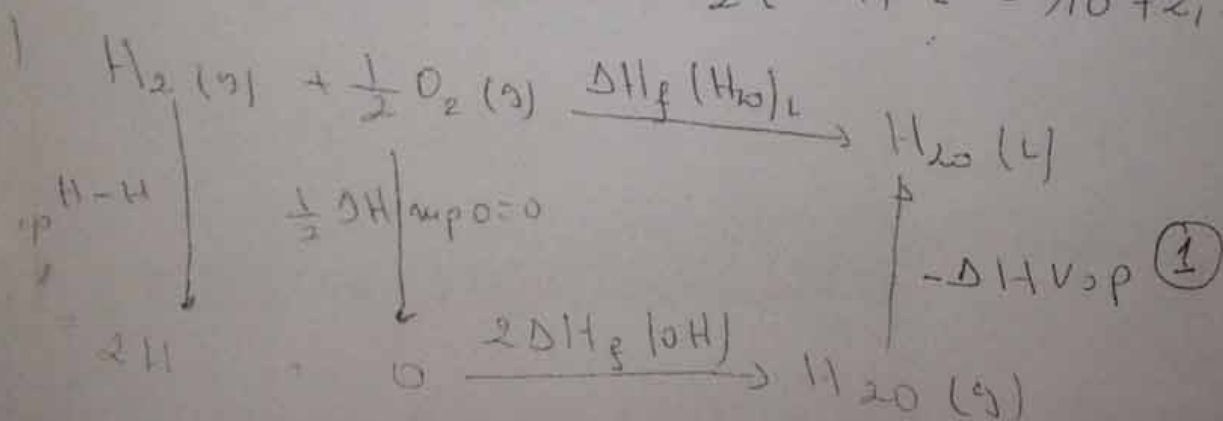 H₂ (g) + 1/2 O₂ (g) ΔHf (H₂O)L H₂O (L)
H-H 1/2 ΔH rup O=O
-ΔH vap ①
2H O 2ΔHf (OH) H₂O (g)